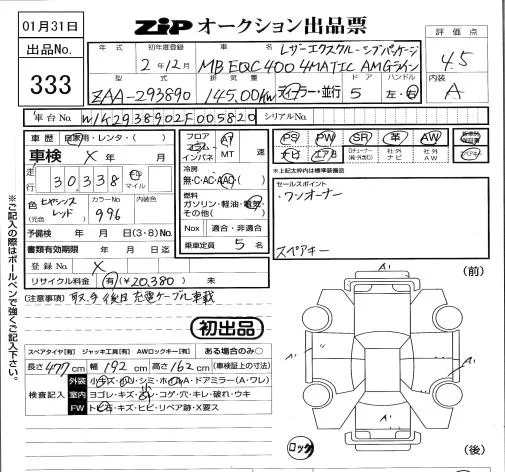 01月31日
ZIP オークション出品票
出品No.
333
年式 初年度登録 車名 評価点
2年12月 MB EQC 400 4MATIC AMGライン
レザーエクスクルーシブパッケージ
4.5
型式 排気量 ドア ハンドル 内装
ZAA-293890 145.00Kw ディーラー・並行 5 左・右 A
車台No. W1K2938902F005820 シリアルNo.
車歴 自家用・レンタ・( )
フロア コラム インパネ AT MT 速
PS PW SR 革 AW
ナビ エアB 社外ナビ 社外AW
車検 X 年 月
冷房 無・C・AC・AAC( )
※上記太枠内は標準装備
走行 30,338 Km マイル
燃料 ガソリン・軽油・電気・その他( )
セールスポイント
・ワンオーナー
スペアキー
色 ヒヤシンスレッド カラーNo. 996 内装色
(元色)
Nox 適合・非適合
予備検 年 月 日(3・8)No.
乗車定員 5 名
書類有効期限 年 月 日迄
登録No. X
リサイクル料金 有(¥20,380) 未
(注意事項) 取、手後日 充電ケーブル車載
初出品
スペアタイヤ[有] ジャッキ工具[有] AWロックキー[有] ある場合のみ○
長さ477cm 幅192cm 高さ162cm (車検証上の寸法)
検査記入
外装 小キズ・
シミ・
A・ドアミラー(A・ワレ)
室内 ヨゴレ・キズ・
コゲ・穴・キレ・破れ・ウキ
FW トビ石・キズ・ヒビ・リペア跡・X要ス
※ご記入の際はボールペンで強くご記入下さい。
(前)
A'
A'
A'
A'
A'
ロック
(後)